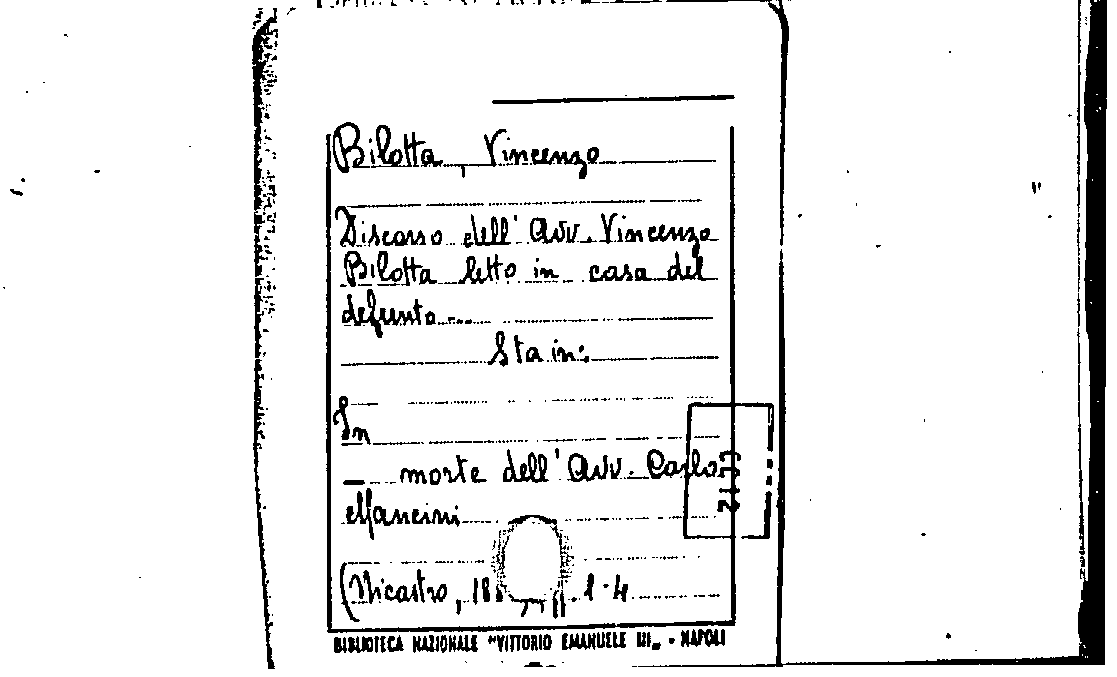 Bilotta, Vincenzo
Discorso dell' Avv. Vincenzo
Bilotta letto in casa del
defunto...
Sta in:
In
— morte dell' Avv. Carlo
Mancini
(Nicastro, 18 . 1-4
BIBLIOTECA NAZIONALE "VITTORIO EMANUELE III" - NAPOLI